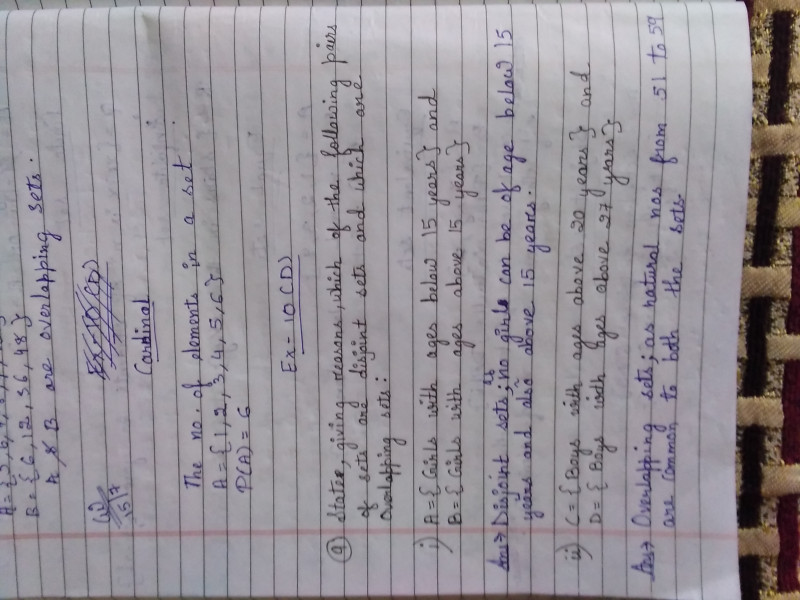 B = { 6, 12, 36, 48 }
A & B are overlapping sets.
15/7
Cardinal
The no. of elements in a set.
A = { 1, 2, 3, 4, 5, 6 }
P(A) = 6
Ex - 10 (D)
Q State, giving reasons, which of the following pairs
of sets are disjoint sets and which are
overlapping sets :
i) A = { Girls with ages below 15 years } and
B = { Girls with ages above 15 years }
Ans → Disjoint sets ; as no girls can be of age below 15
years and also above 15 years.
ii) C = { Boys with ages above 20 years } and
D = { Boys with ages above 27 years }
Ans → Overlapping sets ; as natural nos from 51 to 59
are common to both the sets.